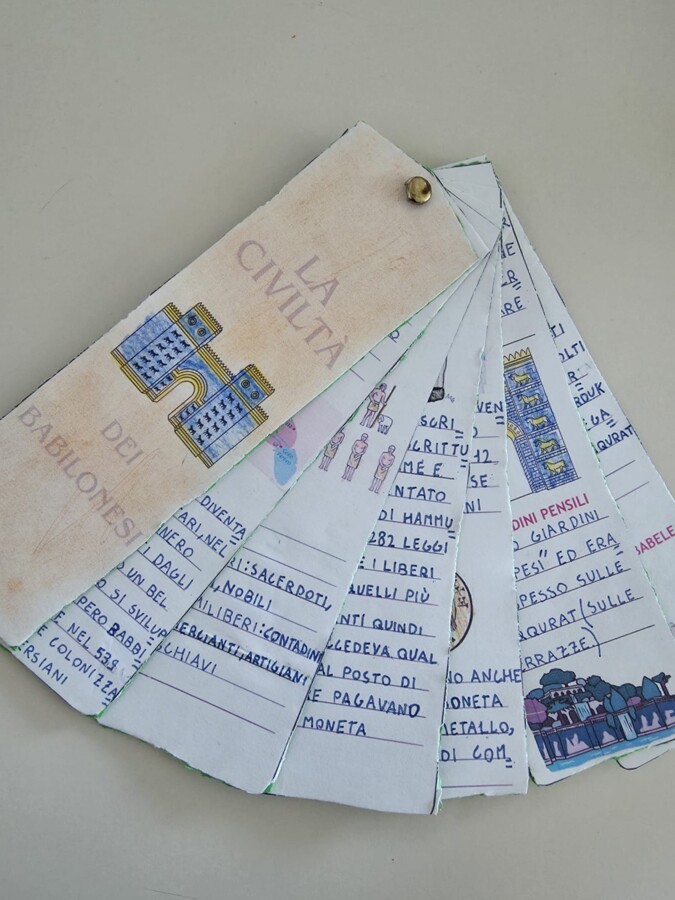 LA
CIVILTÀ
DEI
BABILONESI
DIVENTA
ARI, NEL
NERO
I DAGLI
O UN BEL
O SI SVILUP
PERO BABBI
E NEL 539
E COLONIZZA
ERSIANI
RI: SACERDOTI,
, NOBILI
ILIBERI: CONTADINI
ERCIANTI, ARTIGIANI
SCHIAVI
SCRI
SCRITTU
ME E
NTATO
DI HAMMU
282 LEGGI
E I LIBERI
QUELLI PIÙ
NTI QUINDI
CCEDEVA QUAL
AL POSTO DI
E PAGAVANO
MONETA
VEN
12
SE
NI
NO ANCHE
MONETA
METALLO,
DI COM
E
ER
ARE
DINI PENSILI
O GIARDINI
PESI" ED ERA
SPESSO SULLE
QQURAT (SULLE
ERRAZZE)
TI
OLTI
R
RDUK
EGA
QQURAT
BABELE